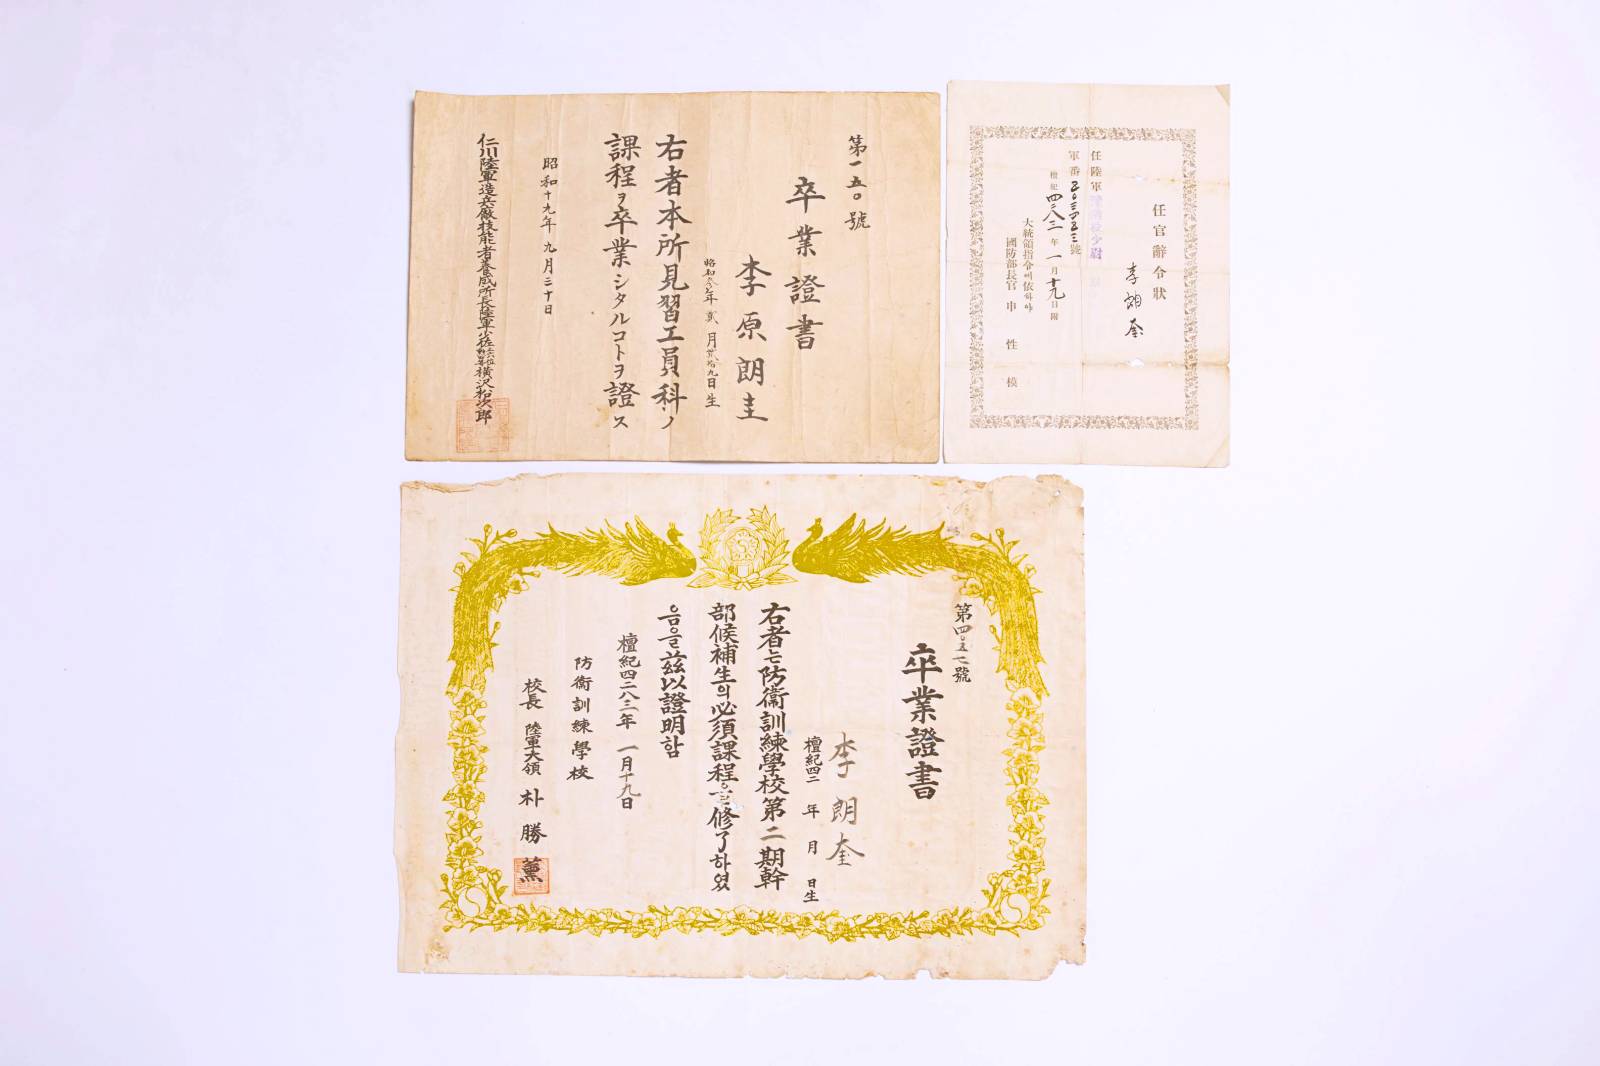 第一五〇號
卒業證書
李原朗圭
年貳月貳拾九日生
右者本所見習工員科ノ
課程ヲ卒業シタルコトヲ證ス
昭和十九年九月三十日
仁川陸軍造兵廠技能者養成所長陸軍少佐橫沢裕次郎
任官辭令狀
李朗奎
任陸軍少尉
軍番
檀紀四二八三年一月十九日附
大統領指令에依하야
國防部長官 申性模
第四〇五七號
卒業證書
李朗奎
檀紀四二 年 月 日生
右者는防衛訓練學校第二期幹
部候補生의必須課程을修了하였
음을玆以證明함
檀紀四二八三年 一月十九日
防衛訓練學校
校長 陸軍大領 朴勝薰